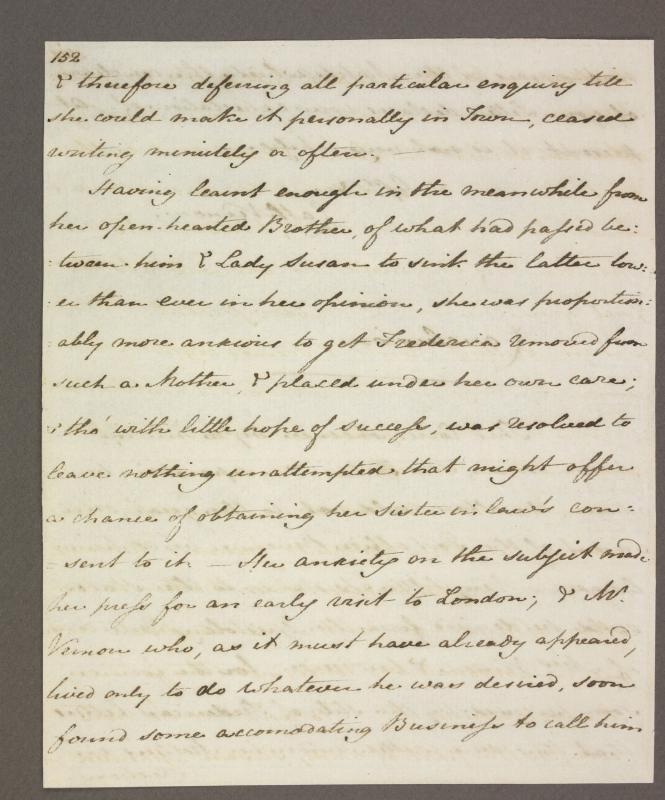 152
& therefore deferring all particular enquiry till
she could make it personally in Town, ceased
writing minutely or often. —
Having learnt enough in the meanwhile from
her open-hearted Brother, of what had passed be:
:tween him & Lady Susan to sink the latter low:
:er than ever in her opinion, she was proportion:
:ably more anxious to get Frederica removed from
such a Mother, & placed under her own care;
& tho' with little hope of success, was resolved to
leave nothing unattempted that might offer
a chance of obtaining her Sister in law's con:
:sent to it. — Her anxiety on the subject made
her press for an early visit to London; & Mr.
Vernon who, as it must have already appeared,
lived only to do whatever he was desired, soon
found some accomodating Business to call him